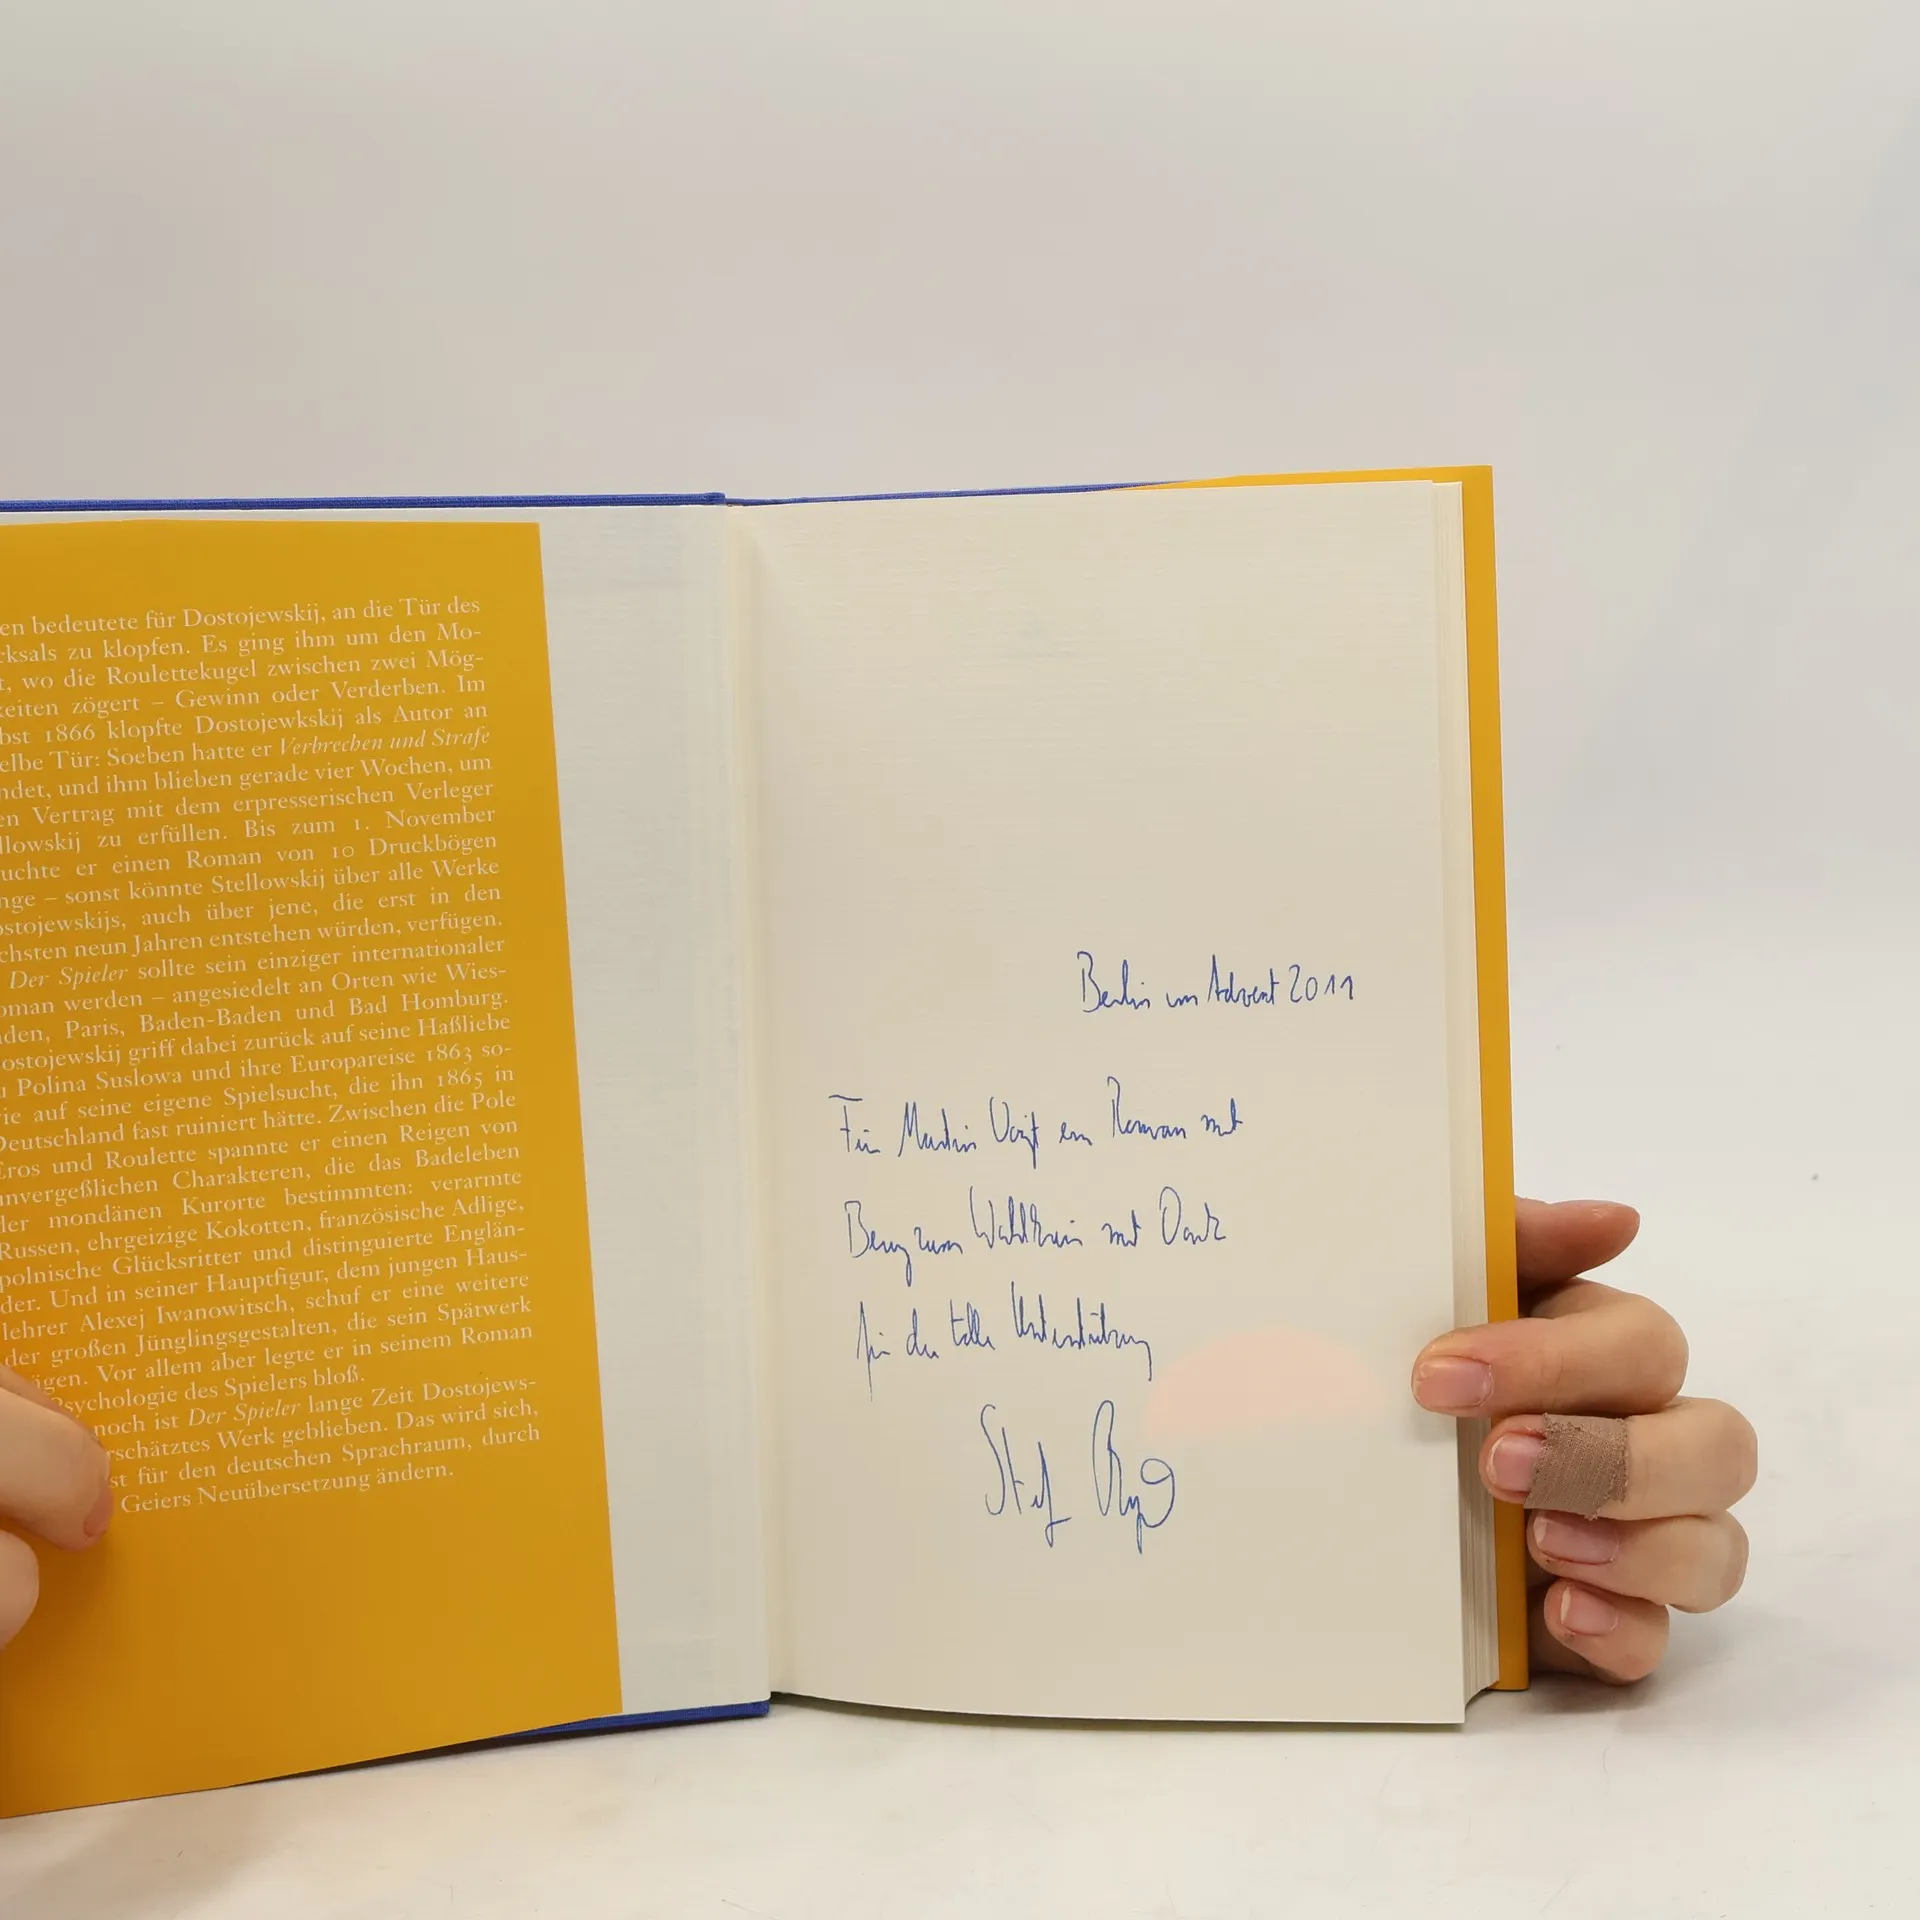 en bedeutete für Dostojewskij, an die Tür des
cksals zu klopfen. Es ging ihm um den Mo-
t, wo die Roulettekugel zwischen zwei Mög-
keiten zögert – Gewinn oder Verderben. Im
bst 1866 klopfte Dostojewkskij als Autor an
elbe Tür: Soeben hatte er Verbrechen und Strafe
ndet, und ihm blieben gerade vier Wochen, um
en Vertrag mit dem erpresserischen Verleger
llowskij zu erfüllen. Bis zum 1. November
uchte er einen Roman von 10 Druckbögen
nge – sonst könnte Stellowskij über alle Werke
ostojewskijs, auch über jene, die erst in den
chsten neun Jahren entstehen würden, verfügen.
Der Spieler sollte sein einziger internationaler
oman werden – angesiedelt an Orten wie Wies-
den, Paris, Baden-Baden und Bad Homburg.
ostojewskij griff dabei zurück auf seine Haßliebe
u Polina Suslowa und ihre Europareise 1863 so-
ie auf seine eigene Spielsucht, die ihn 1865 in
Deutschland fast ruiniert hätte. Zwischen die Pole
Eros und Roulette spannte er einen Reigen von
unvergeßlichen Charakteren, die das Badeleben
der mondänen Kurorte bestimmten: verarmte
Russen, ehrgeizige Kokotten, französische Adlige,
polnische Glücksritter und distinguierte Englän-
der. Und in seiner Hauptfigur, dem jungen Haus-
lehrer Alexej Iwanowitsch, schuf er eine weitere
der großen Jünglingsgestalten, die sein Spätwerk
igen. Vor allem aber legte er in seinem Roman
Psychologie des Spielers bloß.
noch ist Der Spieler lange Zeit Dostojews-
rschätztes Werk geblieben. Das wird sich,
st für den deutschen Sprachraum, durch
Geiers Neuübersetzung ändern.
Berlin im Advent 2011
Für Martin Voigt ein Roman mit
Bezug zum Wahlkreis mit Dank
für die tolle Unterstützung